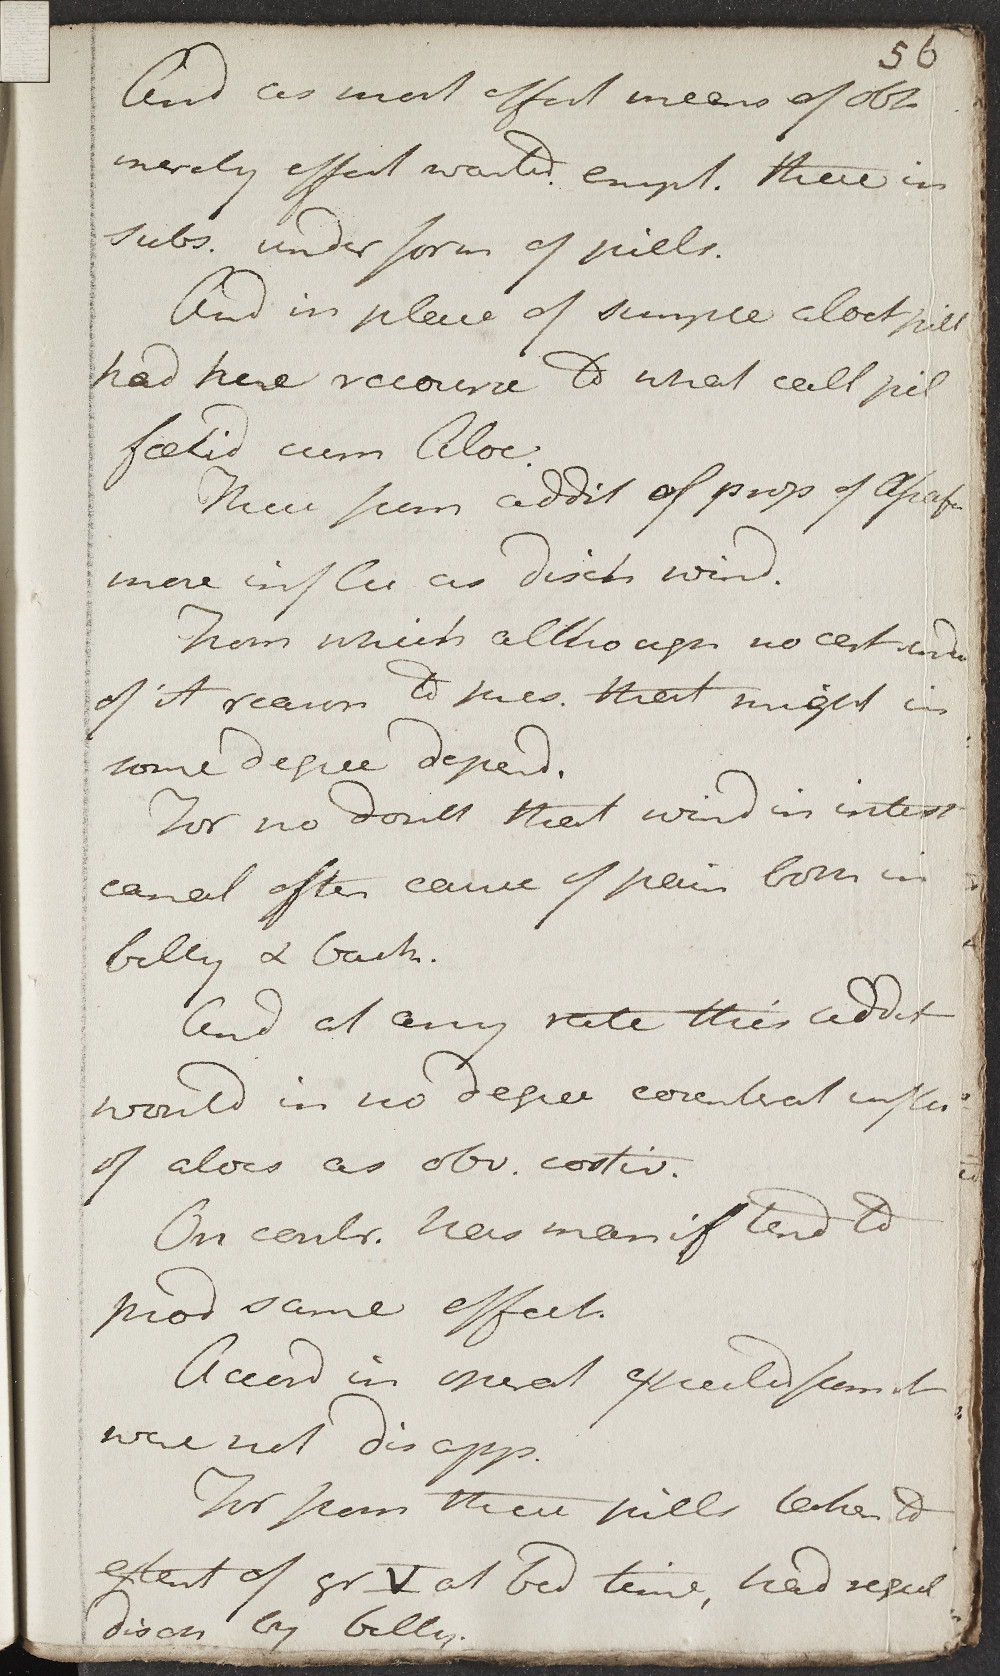 56
And as most effect means of obt
merely effect wanted. empt. these in
subs. under form of pills.
And in place of simple aloet pill
had here recourse to what call pil
fœtid cum Aloe.
These from addit of prop of Asafœ
more influ as disch wind.
From which although no cert evide
of it reason to pres. that might in
some degree depend.
For no doubt that wind in intest
canal often cause of pain both in
belly & back.
And at any rate this addit
would in no degree counteract influ
of aloes as obv. costiv.
On contr. has manif tend to
prod same effect.
Accord in operat expected from it
were not disapp.
For from these pills taken to
extent of gr V at bed time, had regul
disch by belly.